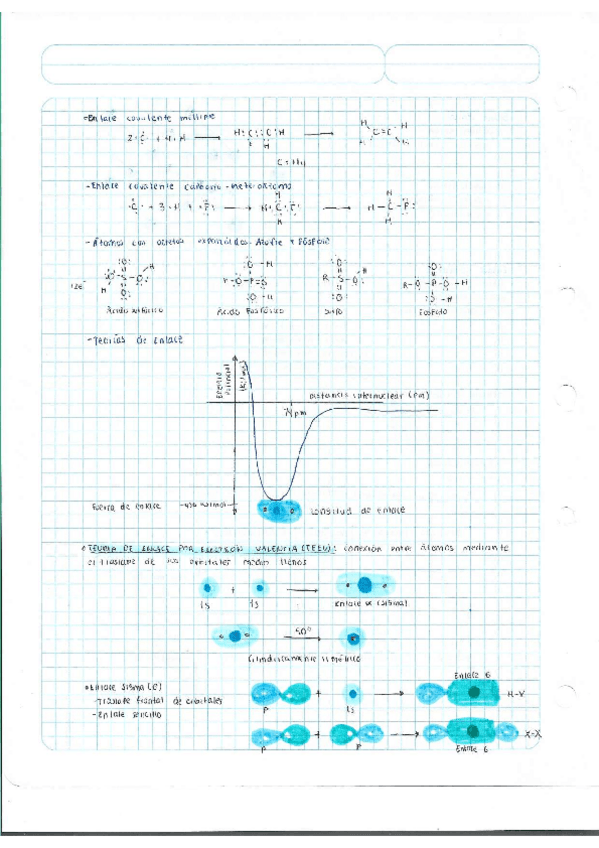 •Enlace covalente múltiple
2·C· + 4·H → H:C::C:H → H C=C H
H H H H
C₂H₄
-Enlace covalente carbono-heteroátomo
·C· + 3·H + ·P: → H:C:P: → H-C-P:
H H
-Átomos con octetos expandidos. Azufre y Fósforo
12e⁻
Ácido sulfúrico Ácido Fosfórico Sulfo Fosfato
-Teorías de Enlace
Energía potencial (KJ/mol)
distancia internuclear (pm)
74 pm
Fuerza de enlace
Longitud de enlace
•TEORÍA DE ENLACE POR ELECTRÓN VALENCIA (TEEV): conexión entre átomos mediante
el traslape de los orbitales medio llenos
+ →
1s 1s Enlace σ (sigma)
90°
Cilíndricamente simétrico
•Enlace Sigma (σ)
-Traslape frontal de orbitales
-Enlace sencillo
Enlace 6
+ → H-X
P 1s
+ → X-X
P P Enlace 6